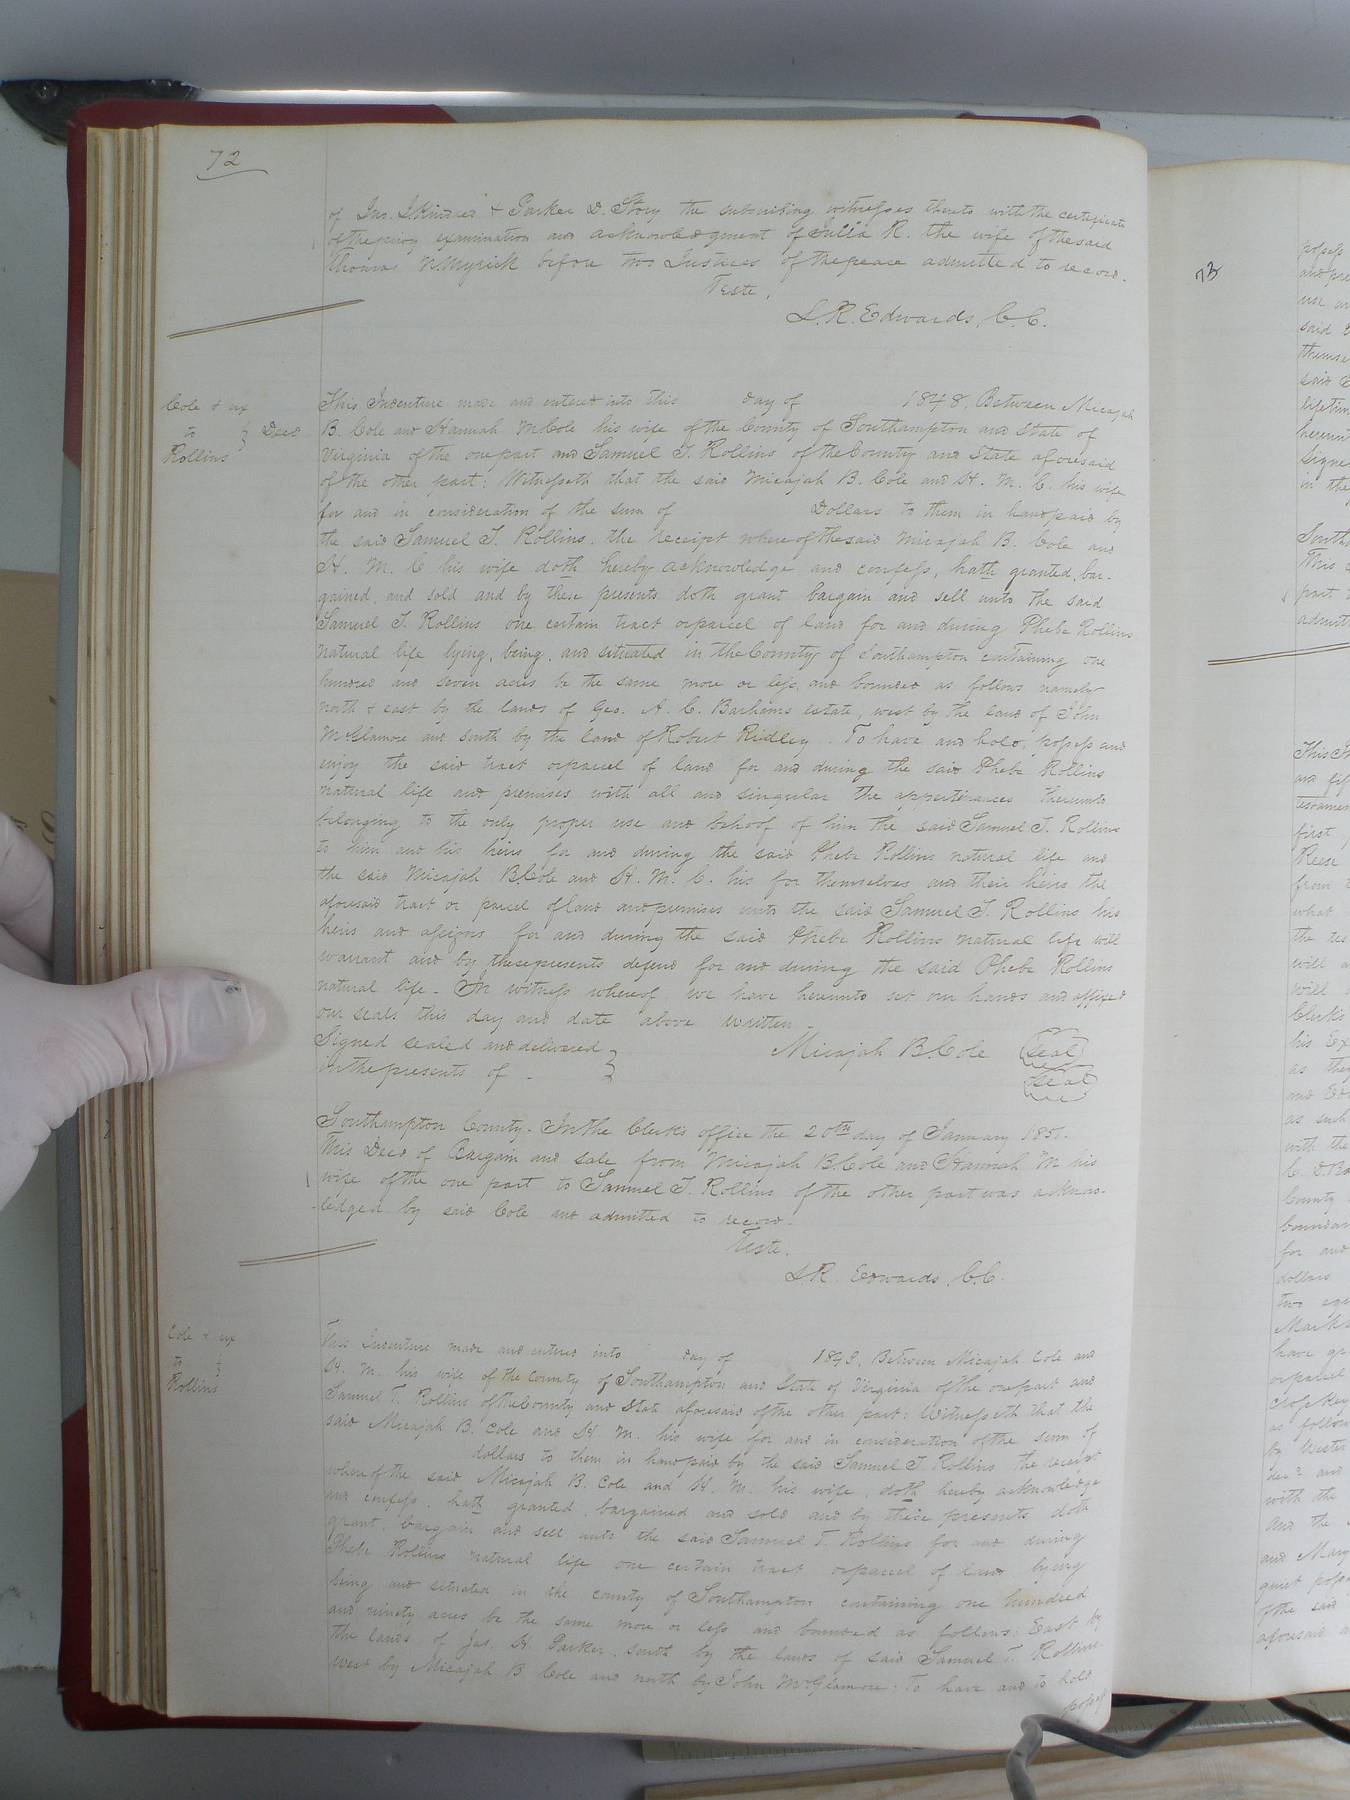 72
of Jno. J. Kindred & Parker D. Story the subscribing witnesses thereto with the certificate
of the privy examination and acknowledgment of Julia R. the wife of the said
Thomas N. Myrick before two Justices of the peace admitted to record.
Teste,
L. R. Edwards, C. C.
Cole & ux
to } Deed
Rollins
This Indenture made and entered into this day of 1848, Between Micajah
B. Cole and Hannah M Cole his wife of the County of Southampton and State of
Virginia of the one part and Samuel T. Rollins of the County and State aforesaid
of the other part: Witnesseth that the said Micajah B. Cole and H. M. C. his wife
for and in consideration of the sum of Dollars to them in hand paid by
the said Samuel T. Rollins, the receipt whereof the said Micajah B. Cole and
H. M. C his wife doth hereby acknowledge and confess, hath granted, bar-
gained, and sold and by these presents doth grant bargain and sell unto the said
Samuel T. Rollins one certain tract or parcel of land for and during Phebe Rollins
natural life lying, being, and situated in the County of Southampton containing one
hundred and seven acres be the same more or less, and bounded as follows namely
north & east by the lands of Geo. A. C. Barhams estate, west by the land of John
McGlamore and south by the land of Robert Ridley. To have and hold, possess and
enjoy the said tract or parcel of land for and during the said Phebe Rollins
natural life and premises with all and singular the appertenances thereunto
belonging to the only proper use and behoof of him the said Samuel T. Rollins
to him and his heirs for and during the said Phebe Rollins natural life and
the said Micajah B Cole and H. M. C. his for themselves and their heirs the
aforesaid tract or parcel of land and premises unto the said Samuel T. Rollins his
heirs and assigns for and during the said Phebe Rollins natural life will
warrant and by these presents defend for and during the said Phebe Rollins
natural life - In witness whereof we have hereunto set our hands and affixed
our seals this day and date above written -
Signed sealed and delivered } Micajah B Cole (seal)
in the presents of - (seal)
Southampton County - In the Clerk's office the 20th day of January 1851.
This Deed of Bargain and sale from Micajah B Cole and Hannah M his
wife of the one part to Samuel T. Rollins of the other part was acknow-
ledged by said Cole and admitted to record.
Teste,
L R. Edwards, C. C.
Cole & ux
to }
Rollins
This Indenture made and entered into day of 1848, Between Micajah Cole and
H. M. his wife of the County of Southampton and State of Virginia of the one part and
Samuel T. Rollins of the County and State aforesaid of the other part: Witnesseth that the
said Micajah B. Cole and H. M. his wife for and in consideration of the sum of
dollars to them in hand paid by the said Samuel T Rollins the receipt
whereof the said Micajah B. Cole and H. M. his wife, doth hereby acknowledge
and confess, hath granted, bargained and sold and by these presents doth
grant, bargain and sell unto the said Samuel T. Rollins for and during
Phebe Rollins natural life one certain tract or parcel of land lying
being and situated in the county of Southampton containing one hundred
and ninety acres be the same more or less and bounded as follows: East by
the lands of Jas. H. Parker, south by the lands of said Samuel T. Rollins
west by Micajah B Cole and north by John McGlamore: To have and to hold
possess
73